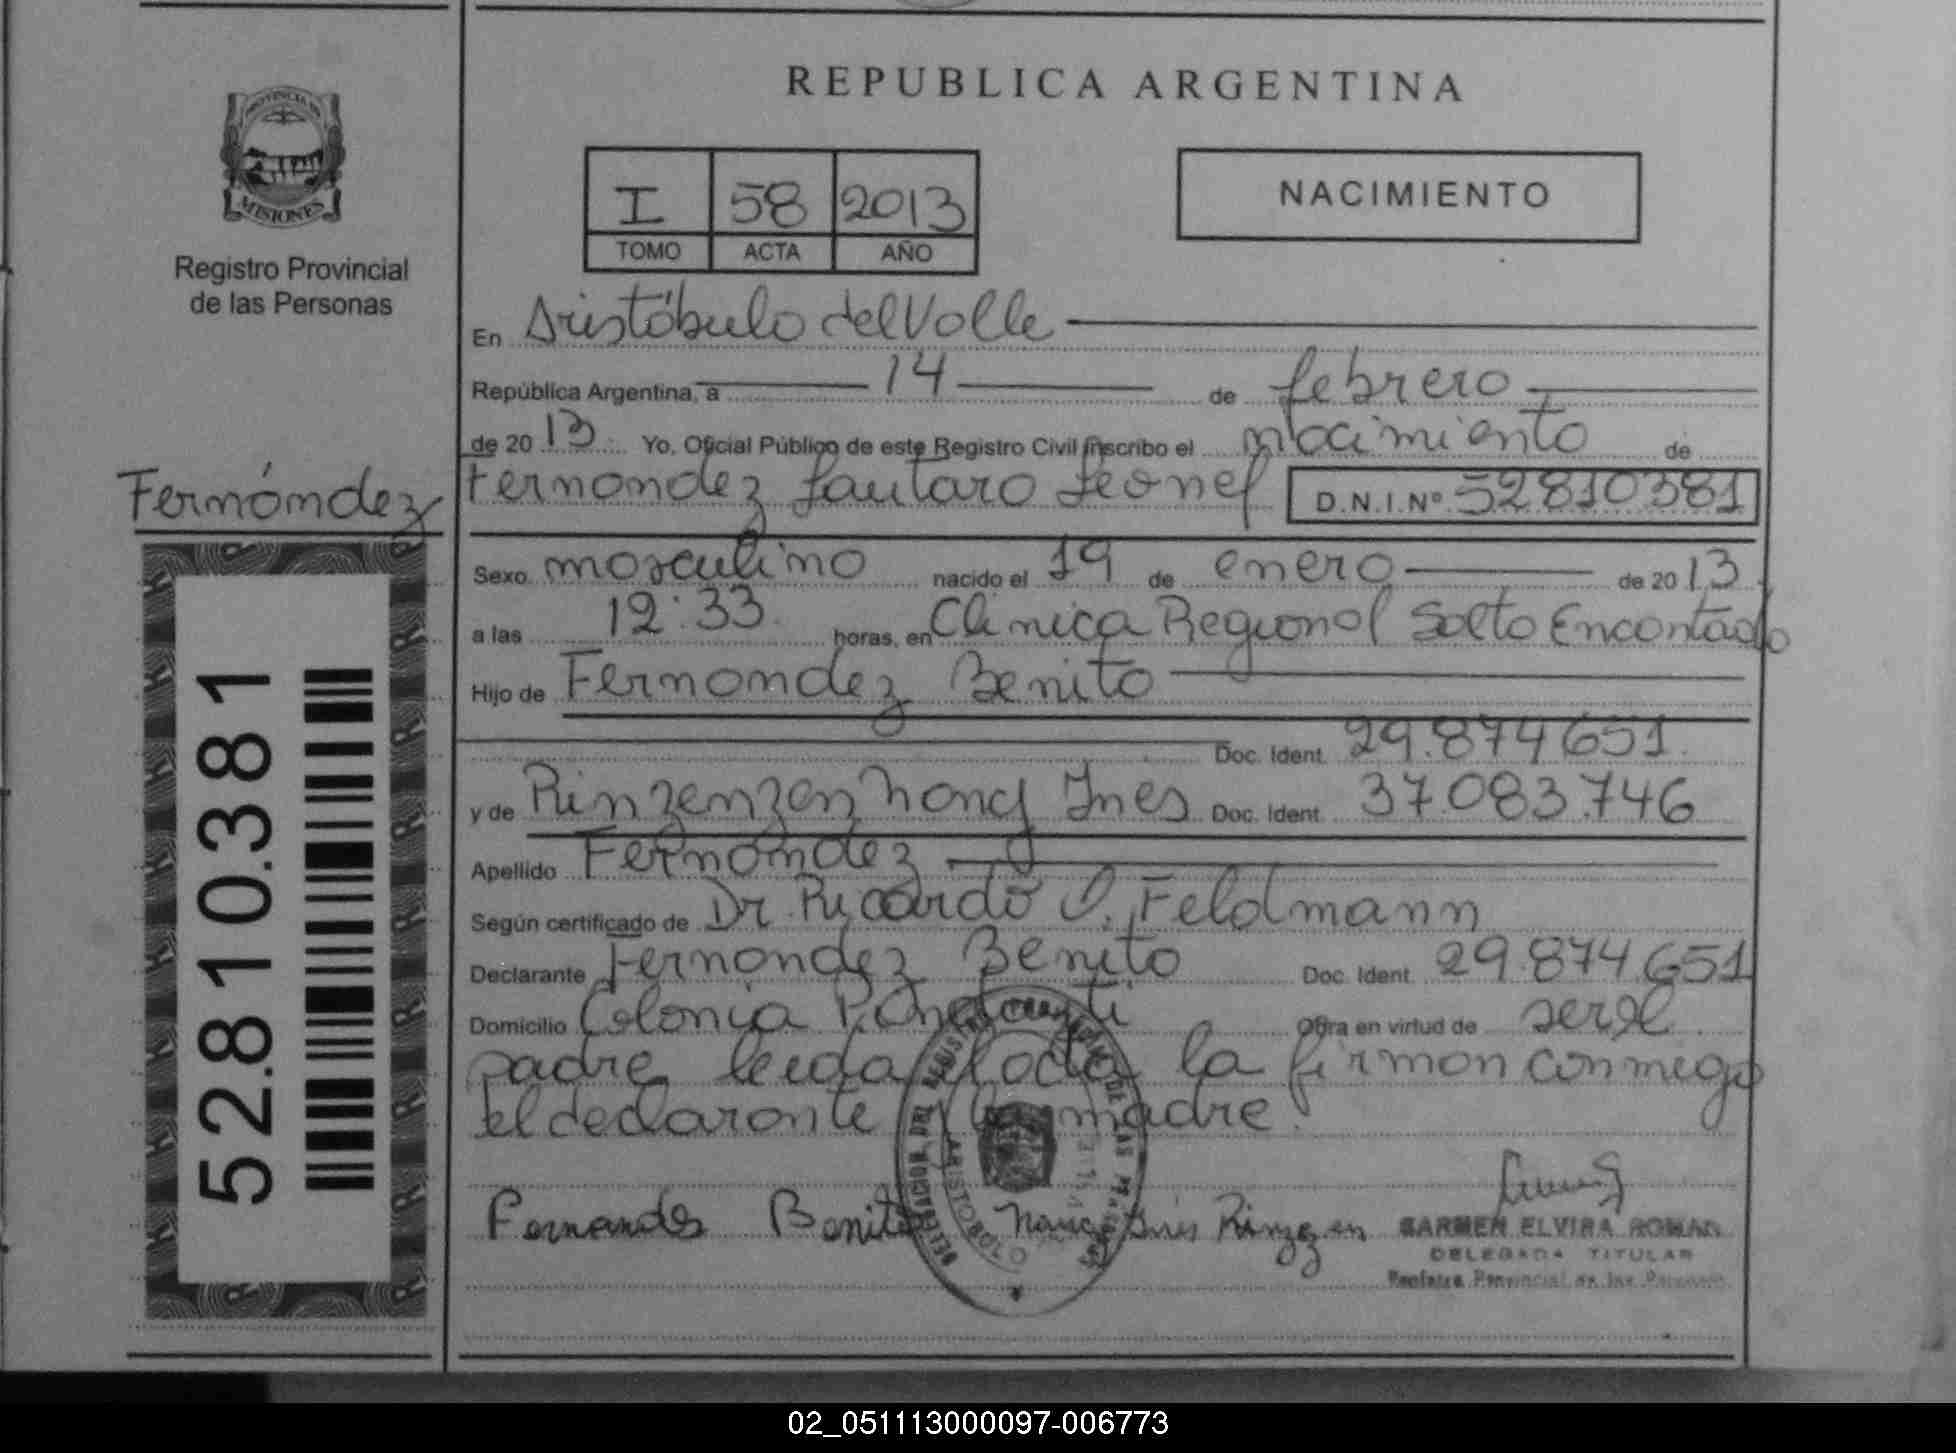 REPUBLICA ARGENTINA
PROVINCIA DE
MISIONES
Registro Provincial
de las Personas
I 58 2013
TOMO ACTA AÑO
NACIMIENTO
En Aristóbulo del Valle
República Argentina, a 14 de febrero
de 20 13 Yo, Oficial Público de este Registro Civil inscribo el nacimiento de
Fernández
Fernandez Lautaro Leonel D.N.I.Nº 52810381
Sexo masculino nacido el 19 de enero de 20 13
a las 12:33 horas, en Clinica Regional Salto Encantado
Hijo de Fernandez Benito
Doc. Ident. 29.874651.
y de Rinzenzen Nancy Ines Doc. Ident. 37.083.746
Apellido Fernández
Según certificado de Dr. Ricardo O. Feldmann
Declarante Fernandez Benito Doc. Ident. 29.874.651
Domicilio Colonia Obra en virtud de ser el
padre leida la firman conmigo
el declarante y la madre.
Fernandes Benito Nancy Inés
CARMEN ELVIRA ROMAN
DELEGADA TITULAR
Registro Provincial de las Personas
52.810.381
02_051113000097-006773